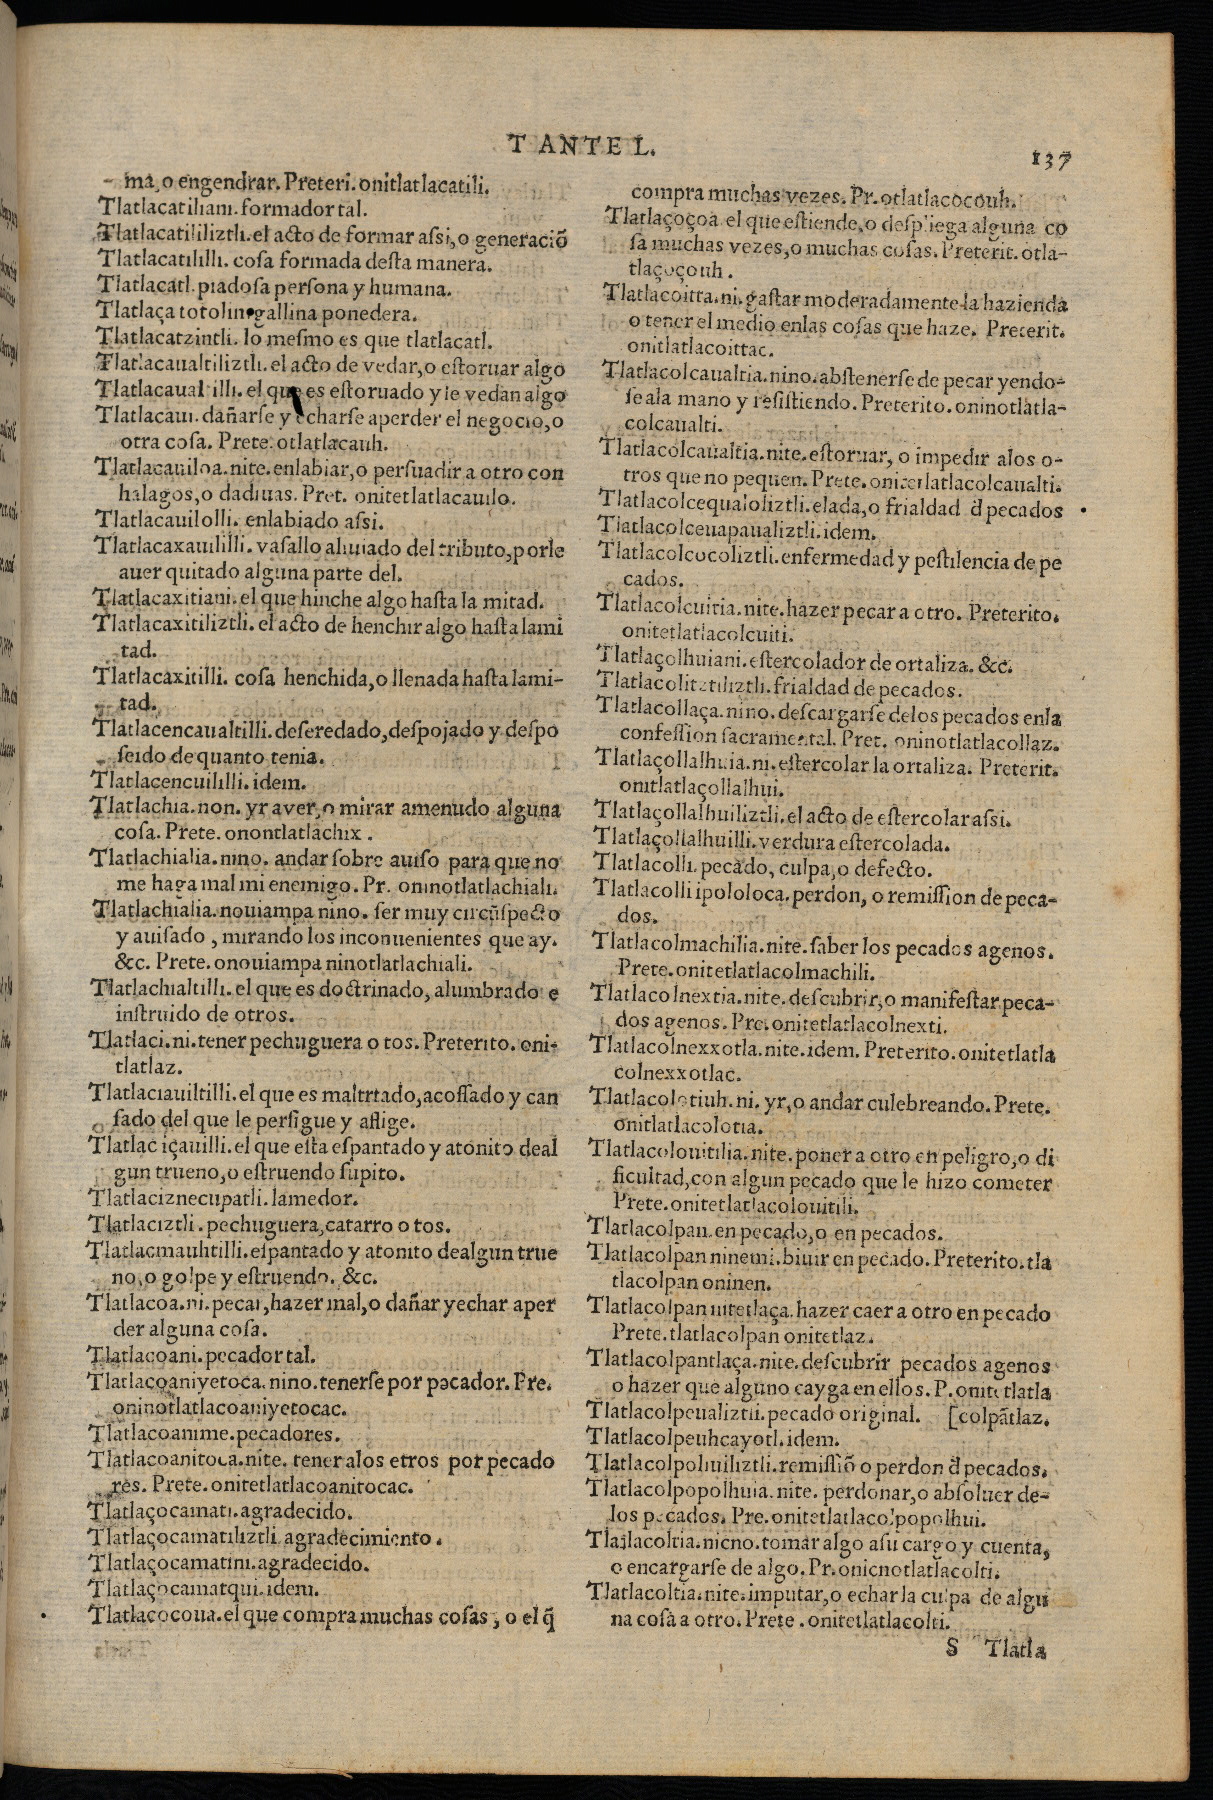 T ANTE L.
137
ma, o engendrar. Preteri. onitlatlacatili.
Tlatlacatiliani. formador tal.
Tlatlacatililiztli. el acto de formar aſsi, o generaciõ
Tlatlacatililli. coſa formada deſta manera.
Tlatlacatl. piadoſa perſona y humana.
Tlatlaça totolin. gallina ponedera.
Tlatlacatzintli. lo meſmo es que tlatlacatl.
Tlatlacaualtiliztli. el acto de vedar, o eſtoruar algo
Tlatlacaual illi. el que es eſtoruado y le vedan algo
Tlatlacaui. dañarſe y echarſe aperder el negocio, o
otra coſa. Prete. otlatlacauh.
Tlatlacauiloa. nite. enlabiar, o perſuadir a otro con
halagos, o dadiuas. Pret. onitetlatlacauilo.
Tlatlacauilolli. enlabiado aſsi.
Tlatlacaxauililli. vaſallo aliuiado del tributo, porle
auer quitado alguna parte del.
Tlatlacaxitiani. el que hinche algo haſta la mitad.
Tlatlacaxitiliztli. el acto de henchir algo haſta lami
tad.
Tlatlacaxitilli. coſa henchida, o llenada haſta lami-
tad.
Tlatlacencaualtilli. deſeredado, deſpojado y deſpo
ſeido de quanto tenia.
Tlatlacencuililli. idem.
Tlatlachia. non. yr a ver, o mirar amenudo alguna
coſa. Prete. onontlatlachix.
Tlatlachialia. nino. andar ſobre auiſo para que no
me haga mal mi enemigo. Pr. oninotlatlachiali.
Tlatlachialia. nouiampa nino. ſer muy circũſpecto
y auiſado, mirando los inconuenientes que ay.
&c. Prete. onouiampa ninotlatlachiali.
Tlatlachialtilli. el que es doctrinado, alumbrado e
inſtruido de otros.
Tlatlaci. ni. tener pechuguera o tos. Preterito. oni-
tlatlaz.
Tlatlaciauiltilli. el que es maltrtado, acoſſado y can
ſado del que le perſigue y aflige.
Tlatlac içauilli. el que eſta eſpantado y atonito deal
gun trueno, o eſtruendo ſupito.
Tlatlaciznecupatli. lamedor.
Tlatlaciztli. pechuguera, catarro o tos.
Tlatlacmauhtilli. eſpantado y atonito dealgun true
no, o golpe y eſtruendo. &c.
Tlatlacoa. ni. pecar, hazer mal, o dañar y echar aper
der alguna coſa.
Tlatlacoani. pecador tal.
Tlatlacoaniyetoca. nino. tenerſe por pecador. Pre.
oninotlatlacoaniyetocac.
Tlatlacoanime. pecadores.
Tlatlacoanitoca. nite. tener alos etros por pecado
res. Prete. onitetlatlacoanitocac.
Tlatlaçocamati. agradecido.
Tlatlaçocamatiliztli. agradecimiento.
Tlatlaçocamatini. agradecido.
Tlatlaçocamatqui. idem.
Tlatlacocoua. el que compra muchas coſas, o el q̃
compra muchas vezes. Pr. otlatlacocouh.
Tlatlaçoçoa. el que eſtiende, o deſpliega alguna co
ſa muchas vezes, o muchas coſas. Preterit. otla-
tlaçoçouh.
Tlatlacoitta. ni. gaſtar moderadamente la hazienda
o tener el medio enlas coſas que haze. Preterit.
onitlatlacoittac.
Tlatlacolcaualtia. nino. abſtenerſe de pecar yendo-
ſe ala mano y reſiſtiendo. Preterito. oninotlatla-
colcaualti.
Tlatlacolcaualtia. nite. eſtoruar, o impedir alos o-
tros que no pequen. Prete. onitetlatlacolcaualti.
Tlatlacolcequaloliztli. elada, o frialdad d̃ pecados
Tlatlacolceuapaualiztli. idem.
Tlatlacolcocoliztli. enfermedad y peſtilencia de pe
cados.
Tlatlacolcuitia. nite. hazer pecar a otro. Preterito.
onitetlatlacolcuiti.
Tlatlaçolhuiani. eſtercolador de ortaliza. &c.
Tlatlacolitztiliztli. frialdad de pecados.
Tlatlacollaça. nino. deſcargarſe delos pecados enla
confeſſion ſacramental. Pret. oninotlatlacollaz.
Tlatlaçollalhuia. ni. eſtercolar la ortaliza. Preterit.
onitlatlaçollalhui.
Tlatlaçollalhuiliztli. el acto de eſtercolar aſsi.
Tlatlaçollalhuilli. verdura eſtercolada.
Tlatlacolli. pecado, culpa, o defecto.
Tlatlacolli ipololoca. perdon, o remiſſion de peca-
dos.
Tlatlacolmachilia. nite. ſaber los pecados agenos.
Prete. onitetlatlacolmachili.
Tlatlacolnextia. nite. deſcubrir, o manifeſtar peca-
dos agenos. Pre. onitetlatlacolnexti.
Tlatlacolnexxotla. nite. idem. Preterito. onitetlatla
colnexxotlac.
Tlatlacolotiuh. ni. yr, o andar culebreando. Prete.
onitlatlacolotia.
Tlatlacolouitilia. nite. poner a otro en peligro, o di
ficultad, con algun pecado que le hizo cometer
Prete. onitetlatlacolouitili.
Tlatlacolpan. en pecado, o en pecados.
Tlatlacolpan ninemi. biuir en pecado. Preterito. tla
tlacolpan oninen.
Tlatlacolpan nitetlaça. hazer caer a otro en pecado
Prete. tlatlacolpan onitetlaz.
Tlatlacolpantlaça. nite. deſcubrir pecados agenos
o hazer que alguno cayga en ellos. P. onitetlatla
Tlatlacolpeualiztli. pecado original. [colpãtlaz.
Tlatlacolpeuhcayotl. idem.
Tlatlacolpoliuiliztli. remiſſiõ o perdon d̃ pecados.
Tlatlacolpopolhuia. nite. perdonar, o abſoluer de-
los pecados. Pre. onitetlatlacolpopolhui.
Tlatlacoltia. nicno. tomar algo aſu cargo y cuenta,
o encargarſe de algo. Pr. onicnotlatlacolti.
Tlatlacoltia. nite. imputar, o echar la culpa de algu
na coſa a otro. Prete. onitetlatlacolti.
S Tlatla